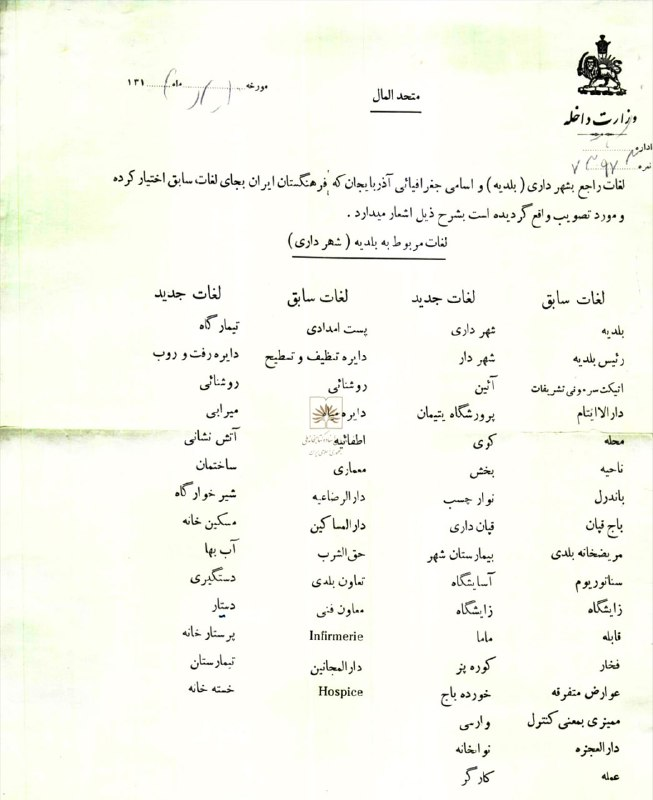 وزارت داخله
اداره
نمره ۷۳۹۷
متحد المال
مورخه ماه ۱۳۱
لغات راجع بشهرداری ( بلدیه ) و اسامی جغرافیائی آذربایجان که فرهنگستان ایران بجای لغات سابق اختیار کرده
و مورد تصویب واقع گردیده است بشرح ذیل اشعار میدارد .
لغات مربوط به بلدیه ( شهر داری )
لغات سابق لغات جدید لغات سابق لغات جدید
بلدیه شهر داری پست امدادی تیمارگاه
رئیس بلدیه شهر دار دایره تنظیف و تسطیح دایره رفت و روب
اتیکت سرمونی تشریفات آئین روشنائی روشنائی
دارالایتام پرورشگاه یتیمان دایره میرابی
محله کوی اطفائیه آتش نشانی
ناحیه بخش معماری ساختمان
باندرل نوار چسب دارالرضاعیه شیر خوارگاه
باج قپان قپان داری دارالمساکین مسکین خانه
مریضخانه بلدی بیمارستان شهر حق‌الشرب آب بها
سناتوریوم آسایشگاه تعاون بلدی دستگیری
زایشگاه زایشگاه معاون فنی دستار
قابله ماما Infirmerie پرستار خانه
فخار کوره پز دارالمجانین تیمارستان
عوارض متفرقه خورده باج Hospice خسته خانه
ممیزی بمعنی کنترل وارسی
دارالعجزه نواخانه
عمله کارگر